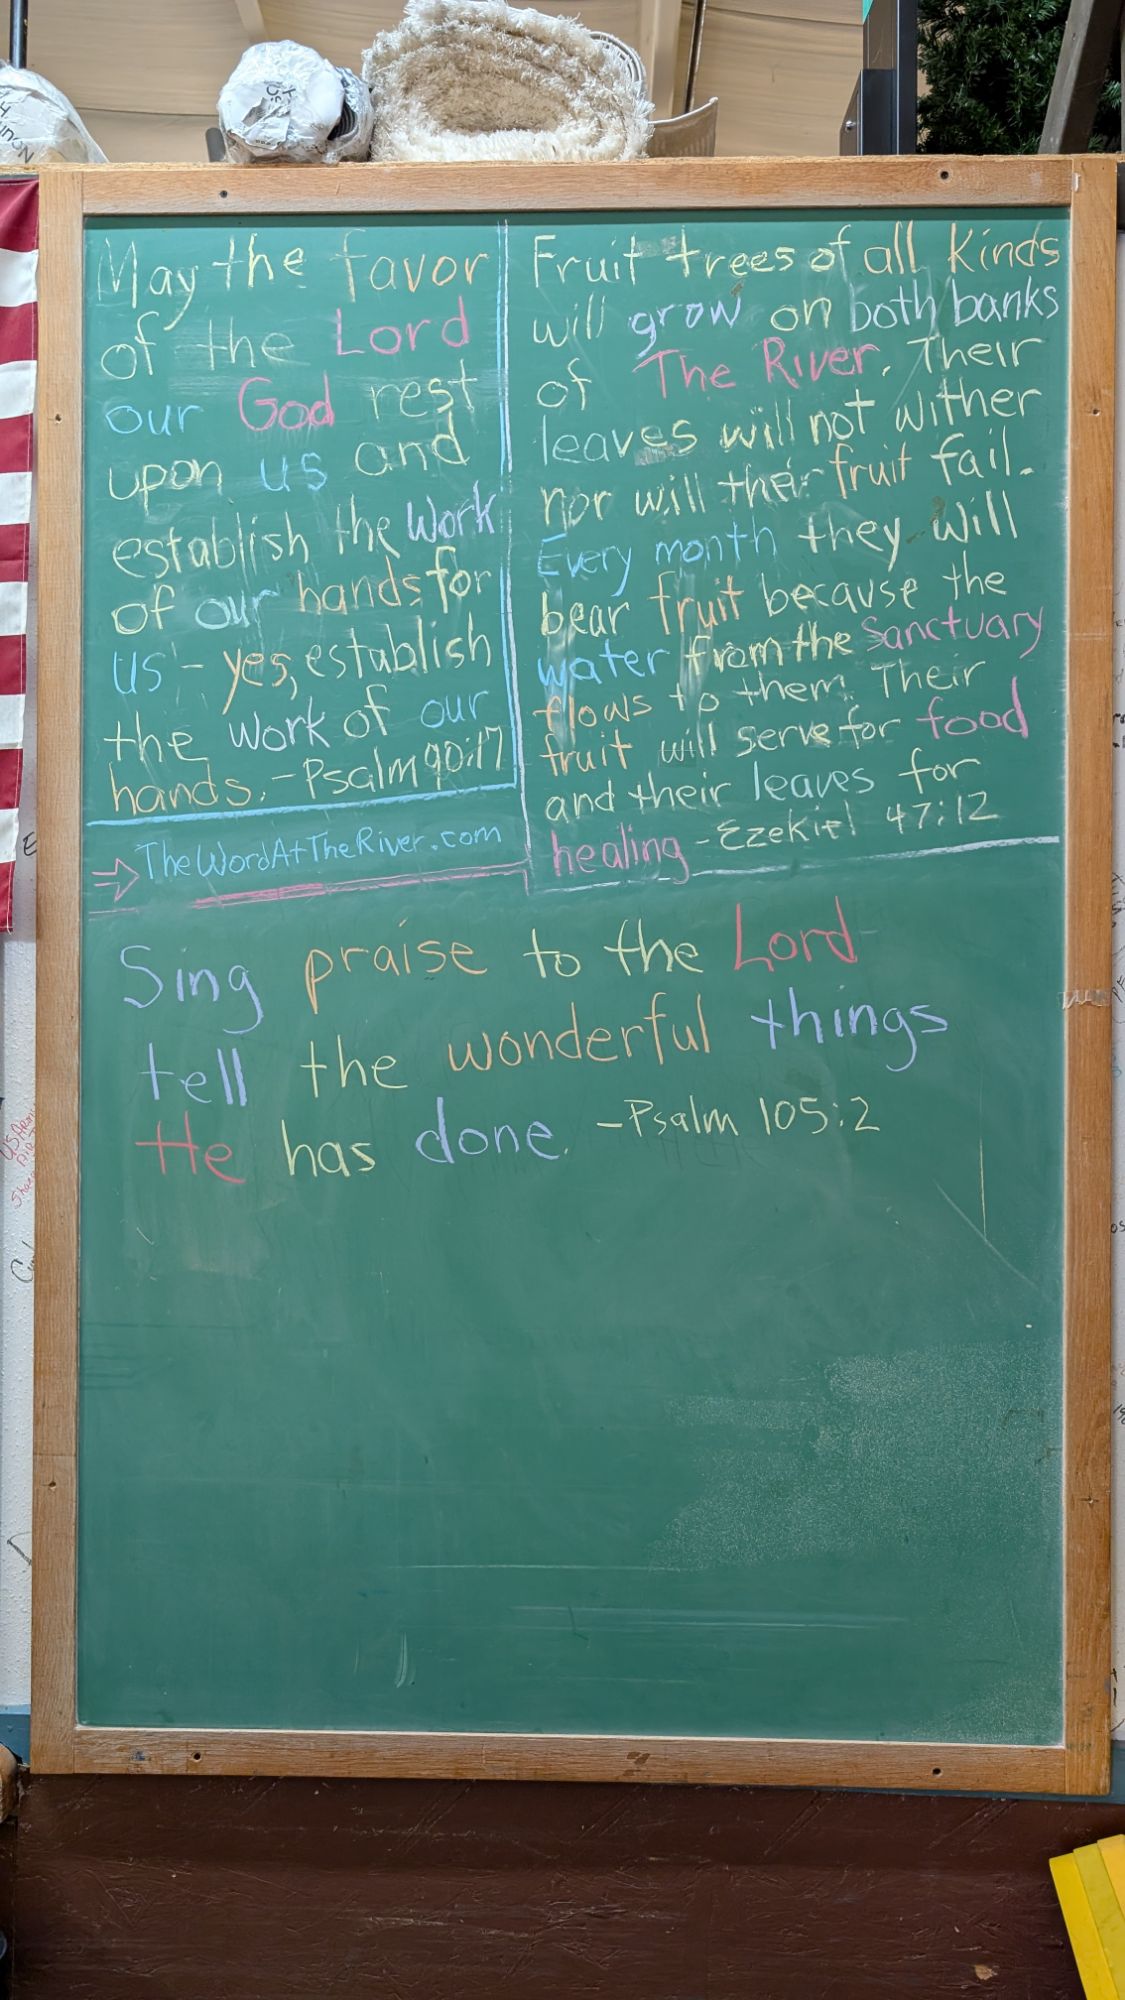 May the favor
of the Lord
our God rest
upon us and
establish the Work
of our hands for
us - yes, establish
the work of our
hands. - Psalm 90:17
TheWordAtTheRiver.com
Fruit trees of all Kinds
will grow on both banks
of The River. Their
leaves will not wither
nor will their fruit fail.
Every month they will
bear fruit because the
water from the Sanctuary
flows to them. Their
fruit will serve for food
and their leaves for
healing - Ezekiel 47:12
Sing praise to the Lord
tell the wonderful things
He has done. - Psalm 105:2